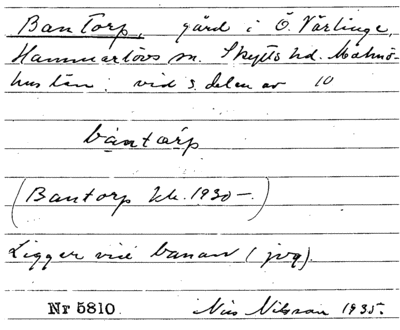 Bantorp, gård i Ö. Värlinge,
Hammarlövs sn. Skytts hd. Malmö-
hus län: vid s. delen av 10
bàntárp
(Bantorp kk. 1930-)
Ligger vid banan (jvg).
Nr 5810 Nils Nilsson 1935.